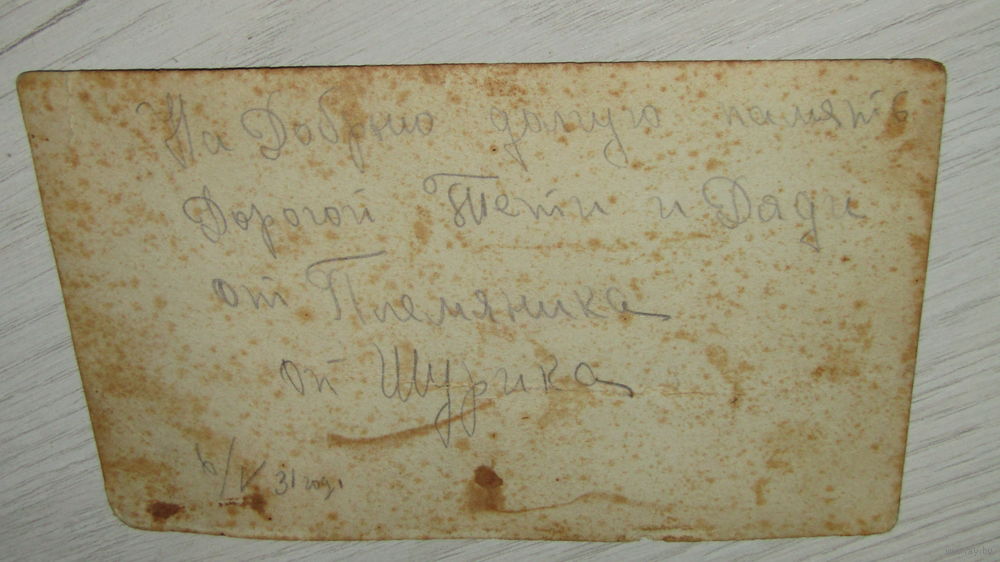 На Добрую долгую память
Дорогой Тети и Дяди
от Племяника
от Шурика
6/V 31 год.